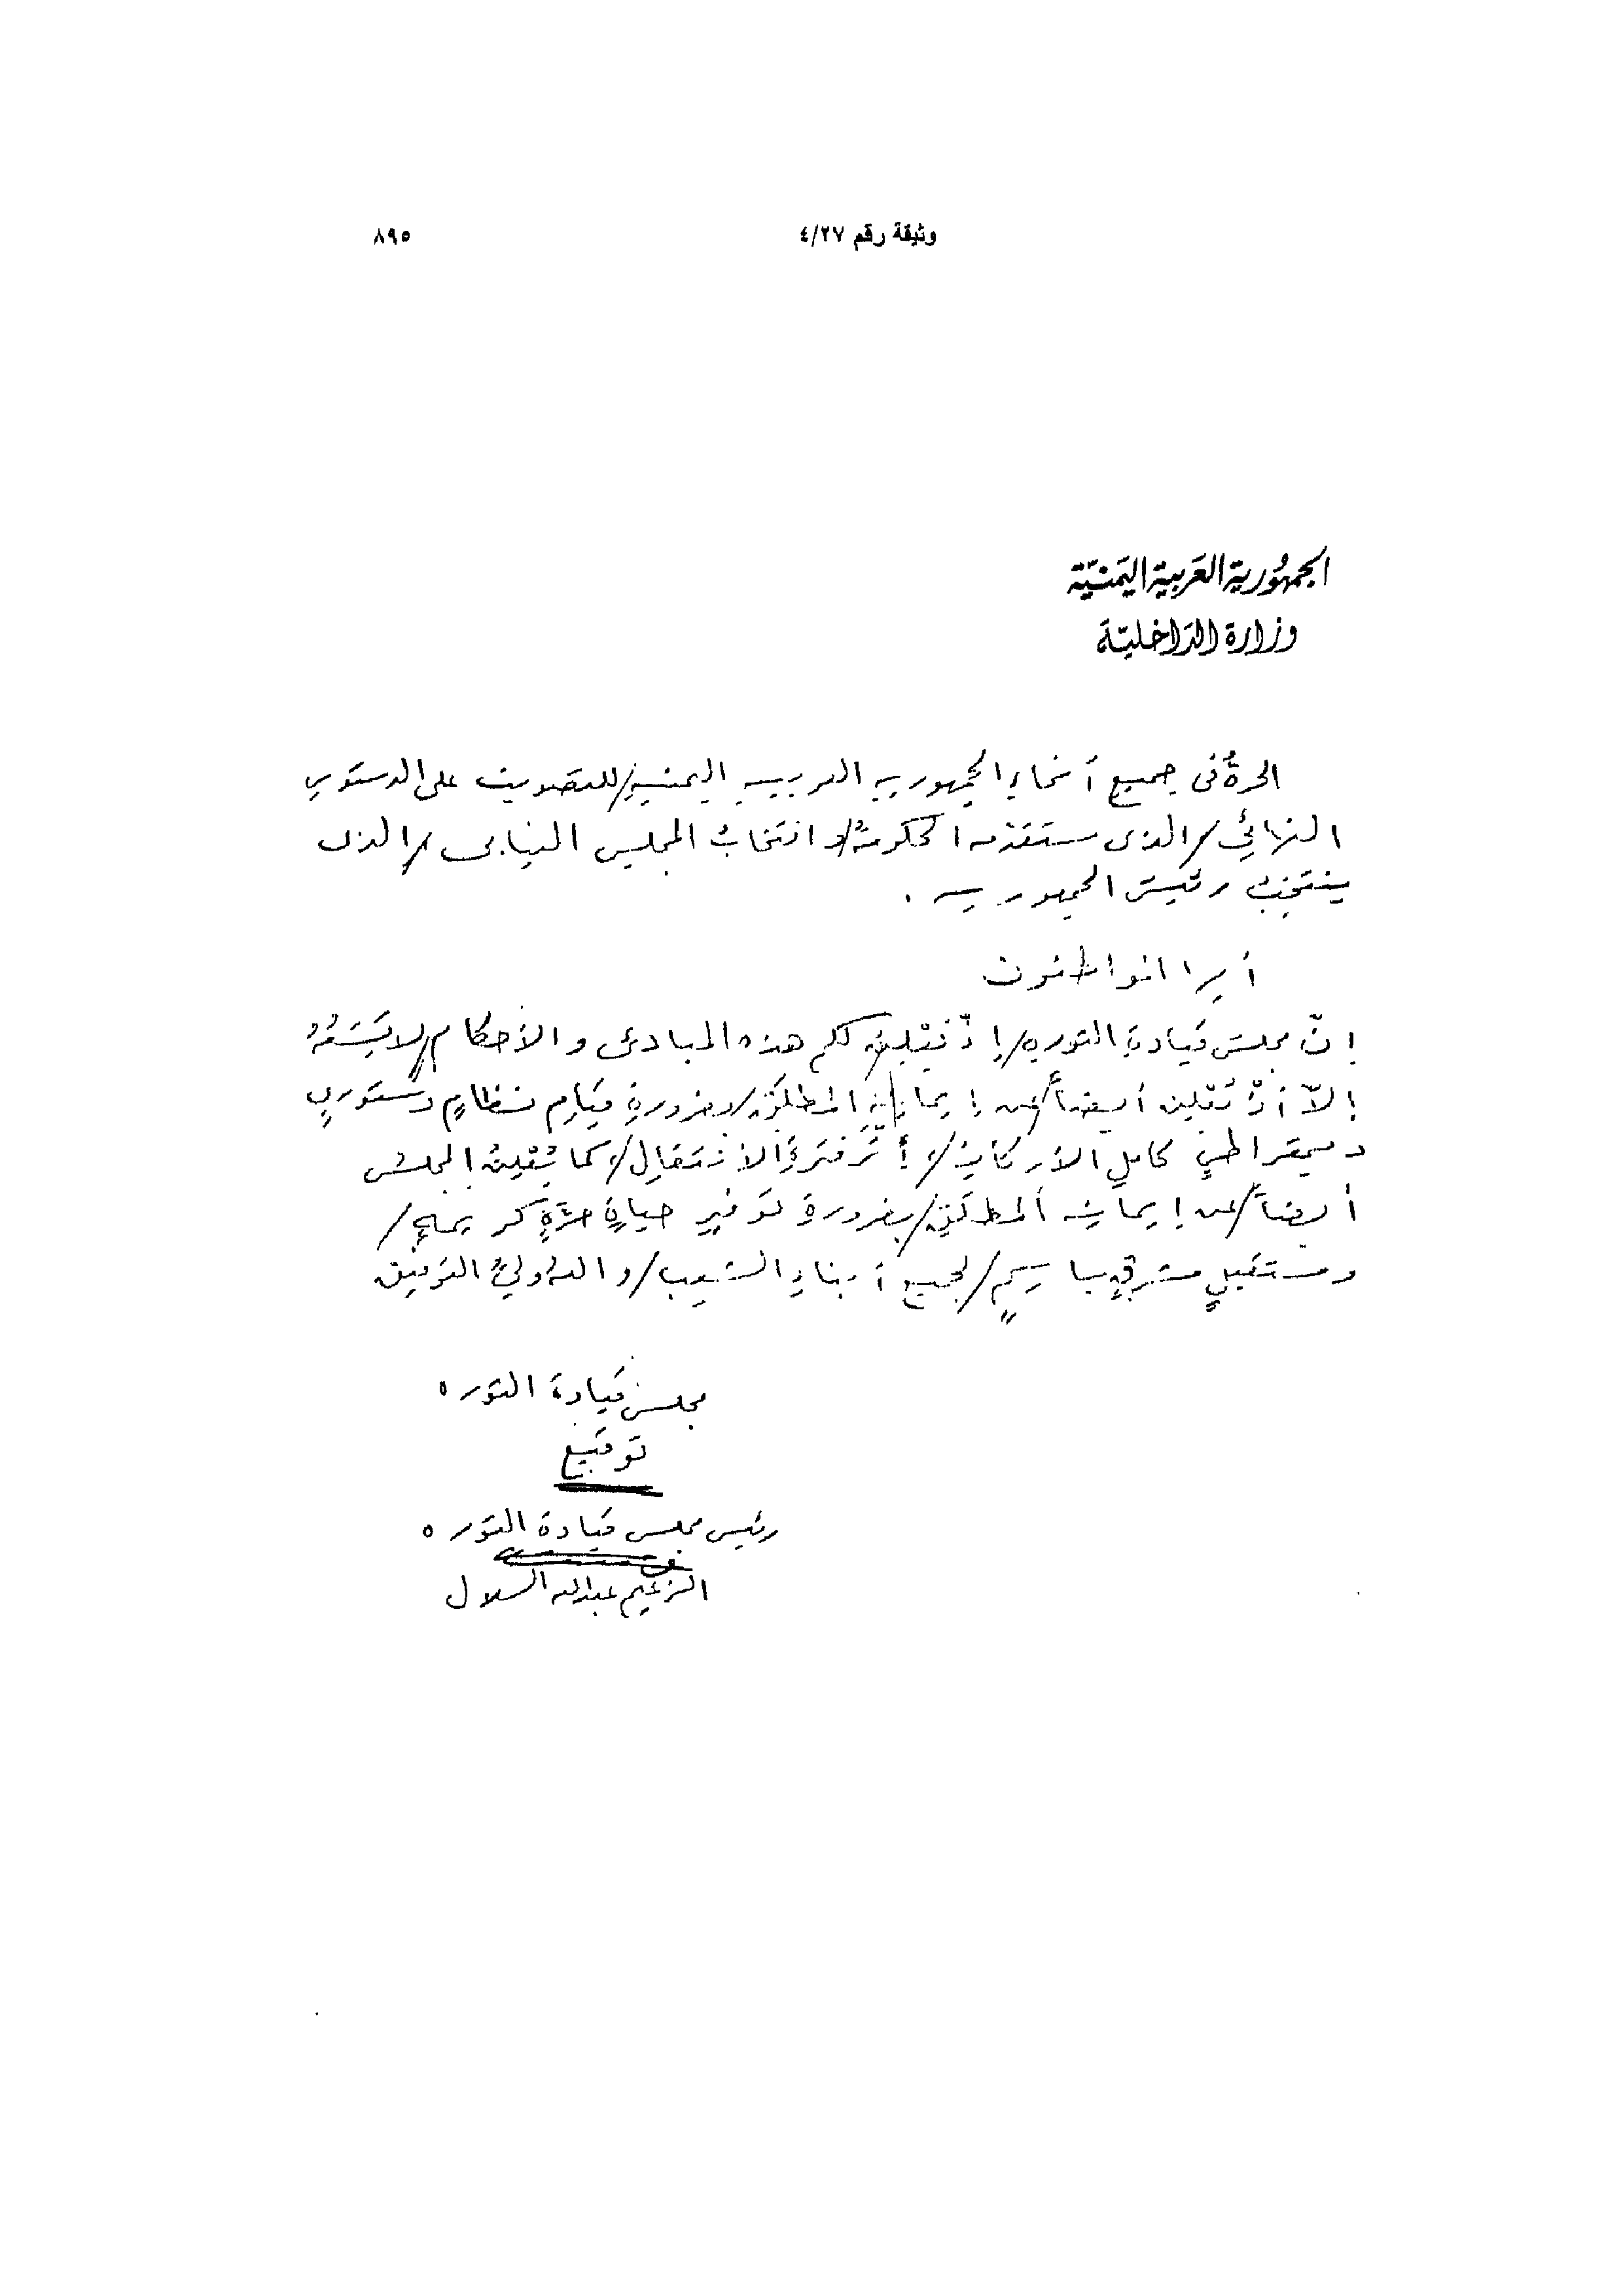 وثيقة رقم ٤/٢٧ ٨٩٥
الجمهُورية العَربية اليَمنيَّة
وزارة الدَاخليّة
الحرةُ فى جميعِ أنحاءِ الجمهوريه العربيه اليمنيةِ/للتصويت على الدستورِ
النهائىِّ/الذى ستقدمه الحكومةُ/و انتخابُ المجلس النيابى/الذى
ينتخبُ رئيسَ الجمهوريه .
أيها المواطنون
إنّ مجلسَ قيادةِ الثوره/إذْ يُعْلِنُ لكم هذه المبادئ و الأحكام/لا يَسَعُهُ
إلاّ أنْ يُعْلِنَ أيضاً/عن إيمانِهِ المطلَقِ/بضرورةِ قيامِ نظامٍ دستورىٍ
ديمقراطىٍ كاملِ الأركانِ/إثْرَ فترَةِ الانتقالِ/كما يُعْلِنُ المجلسُ
أيضاً/عن إيمانِه المطلَقِ/بضرورةِ توفيرِ حياةٍ حرّةٍ كريمةٍ/
ومستقبلٍ مشرقٍ باسمٍ/لجميع أبناءِ الشعب/و اللهُ ولىُّ التوفيق
مجلس قيادة الثوره
توقيع
رئيس مجلس قيادة الثوره
الزعيم عبدالله السلال